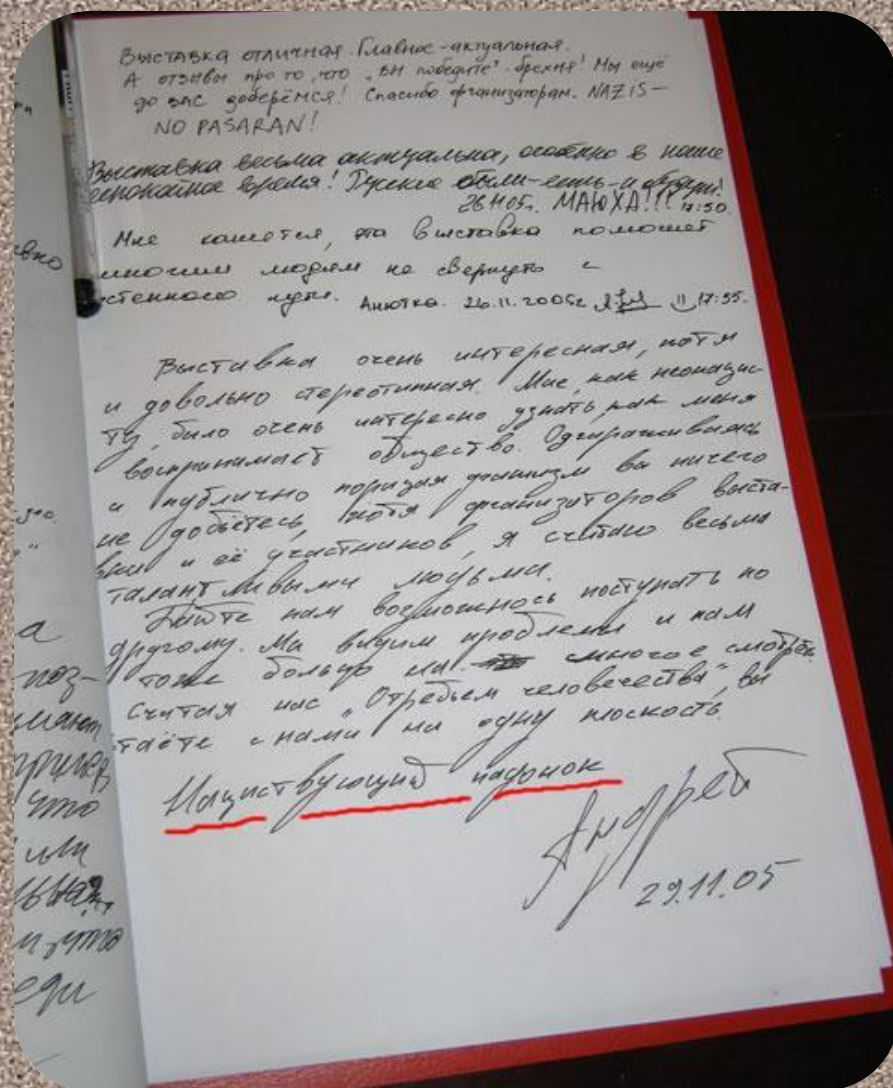 Выставка отличная. Главное - актуальная.
А отзывы про то, что „ВН победит" - брехня! Мы ещё
до вас доберёмся! Спасибо организаторам. NAZIS -
NO PASARAN!
Выставка весьма актуальна, особенно в наше
время! Русские были - есть - и будут!
26.11.05г. МАЮХА!!! 17:50.
Мне кажется, эта выставка поможет
многим людям не свернуть с
пути. Анютка. 26.11.2005г. 17:55.
Выставка очень интересная, хотя
и довольно стереотипная. Мне, как неонацис-
ту, было очень интересно узнать, как меня
воспринимает общество. Огораживаясь
и публично порицая вы ничего
не добьётесь, хотя организаторов выста-
вки и её участников, я считаю весьма
талантливыми людьми.
Дайте нам возможнось поступать по
другому. Мы видим проблемы и нам
тоже больно на многое смотреть.
Считая нас „Отребьем человечества", вы
с нами на одну плоскость.
Нациствующий падонок
Андрей
29.11.05
а
поз-
что
или
еди